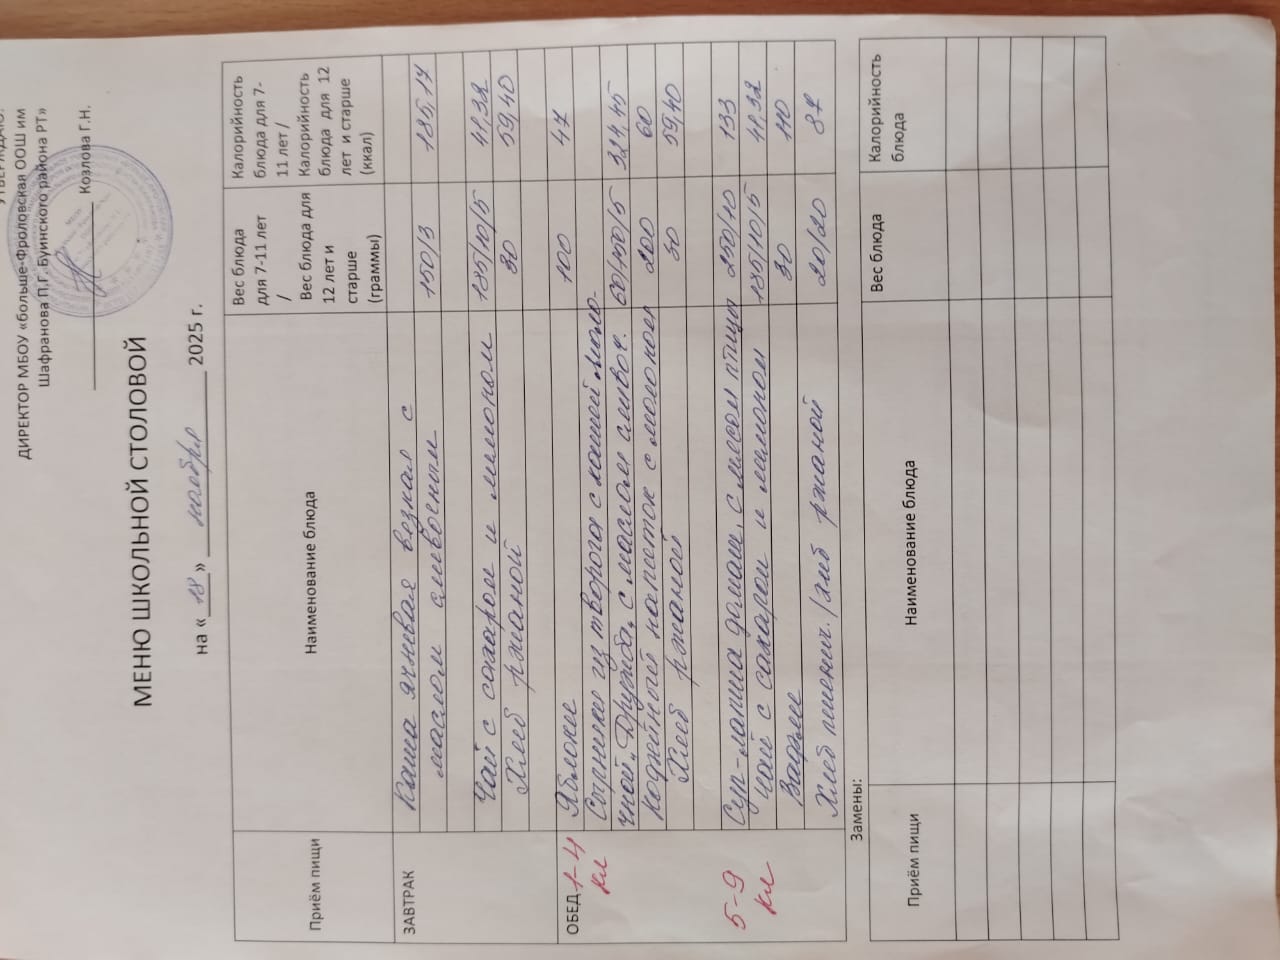 ДИРЕКТОР МБОУ «больше-Фроловская ООШ им
Шафранова П.Г. Буинского района РТ»
Козлова Г.Н.
МЕНЮ ШКОЛЬНОЙ СТОЛОВОЙ
на « 18 » ноября 2025 г.
Приём пищи Наименование блюда Вес блюда для 7-11 лет / Вес блюда для 12 лет и старше (граммы) Калорийность блюда для 7-11 лет / Калорийность блюда для 12 лет и старше (ккал)
ЗАВТРАК Каша ячневая вязкая с
маслом сливочным 150/3 185,17
Чай с сахаром и лимоном 185/10/5 41,32
Хлеб ржаной 30 59,40
ОБЕД 1-4 Яблоки 100 47
кл Сырники из творога с кашей моло-
чной, Дружба, с маслом сливоч. 60/150/5 324,45
кофейный напиток с молоком 200 60
Хлеб ржаной 30 59,40
5-9 Суп-лапша домаш. с мясом птицы 250/10 133
кл чай с сахаром и лимоном 185/10/5 41,32
Вафли 30 110
Хлеб пшенич./хлеб ржаной 20/20 87
Замены:
Приём пищи Наименование блюда Вес блюда Калорийность блюда